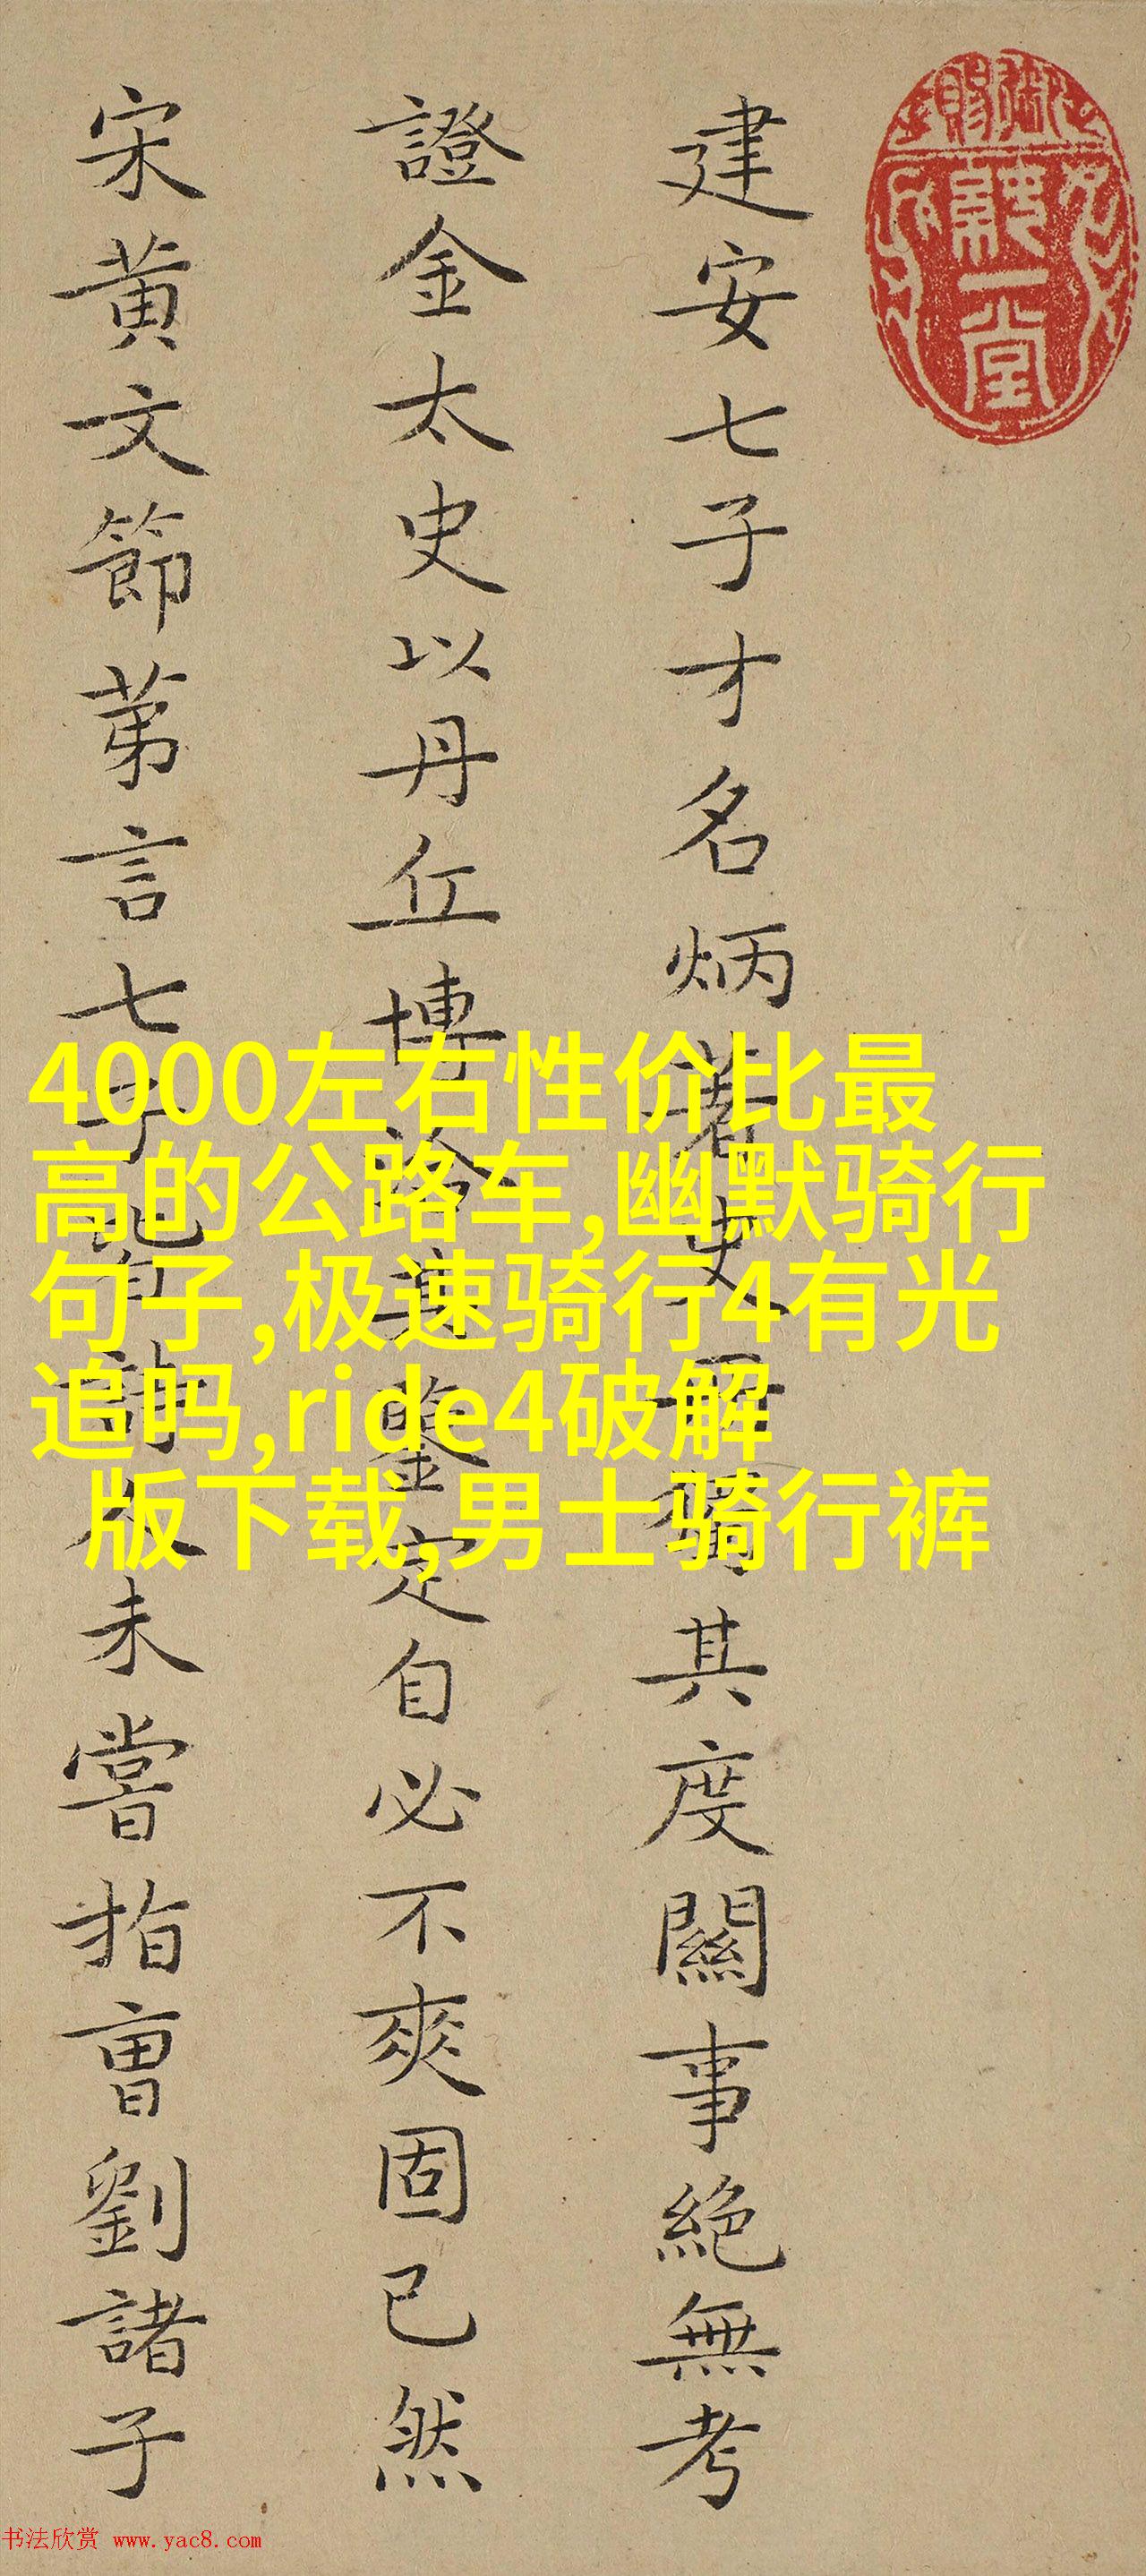 建安七子才名炳著其度關事絕無考
證金太史以丹丘博洽鑒定自必不爽固已然
宋黃文節苐言七子皆詩人未嘗指曹劉諸子
4000左右性价比最
高的公路车,幽默骑行
句子,极速骑行4有光
追吗,ride4破解
版下载,男士骑行裤
书法欣赏 www.yac8.com